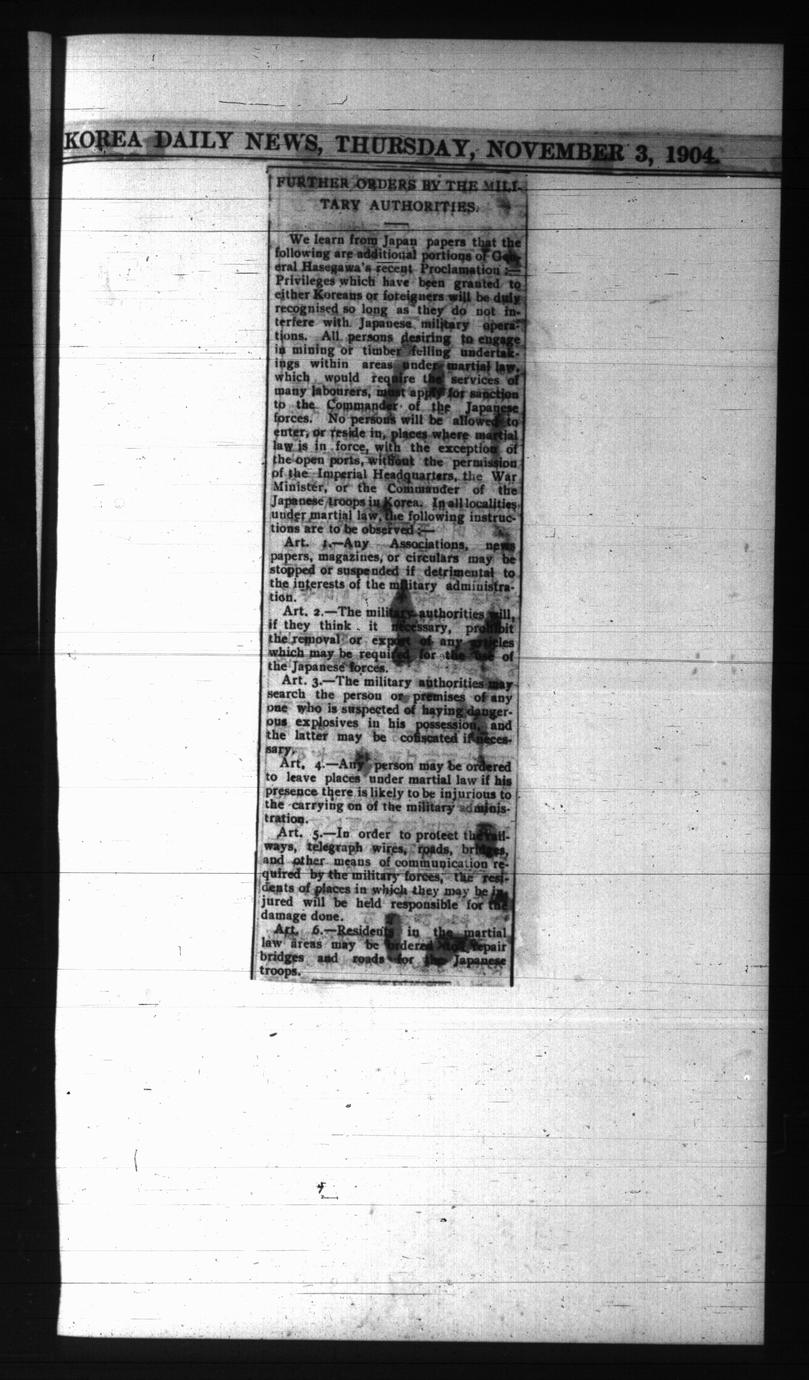 KOREA DAILY NEWS, THURSDAY, NOVEMBER 3, 1904.
FURTHER ORDERS BY THE MILI-
TARY AUTHORITIES.
We learn from Japan papers that the
following are additional portions of Gen-
eral Hasegawa's recent Proclamation :—
Privileges which have been granted to
either Koreans or foreigners will be duly
recognised so long as they do not in-
terfere with Japanese military opera-
tions. All persons desiring to engage
in mining or timber felling undertak-
ings within areas under martial law,
which would require the services of
many labourers, must apply for sanction
to the Commander of the Japanese
forces. No persons will be allowed to
enter, or reside in, places where martial
law is in force, with the exception of
the open ports, without the permission
of the Imperial Headquarters, the War
Minister, or the Commander of the
Japanese troops in Korea. In all localities
under martial law, the following instruc-
tions are to be observed :—
Art. 1.—Any Associations, news
papers, magazines, or circulars may be
stopped or suspended if detrimental to
the interests of the military administra-
tion.
Art. 2.—The military authorities will,
if they think it necessary, prohibit
the removal or export of any articles
which may be required for the use of
the Japanese forces.
Art. 3.—The military authorities may
search the person or premises of any
one who is suspected of having danger-
ous explosives in his possession, and
the latter may be confiscated if neces-
sary.
Art. 4.—Any person may be ordered
to leave places under martial law if his
presence there is likely to be injurious to
the carrying on of the military adminis-
tration.
Art. 5.—In order to protect the rail-
ways, telegraph wires, roads, bridges,
and other means of communication re-
quired by the military forces, the resi-
dents of places in which they may be in-
jured will be held responsible for the
damage done.
Art. 6.—Residents in the martial
law areas may be ordered to repair
bridges and roads for the Japanese
troops.